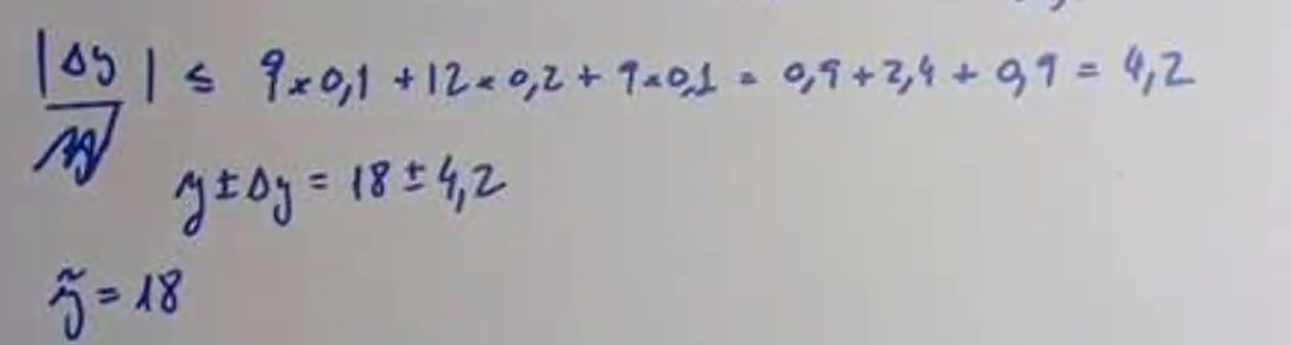 |Δy| ≤ 9×0,1 + 12×0,2 + 9×0,1 = 0,9 + 2,4 + 0,9 = 4,2
y ± Δy = 18 ± 4,2
ỹ = 18